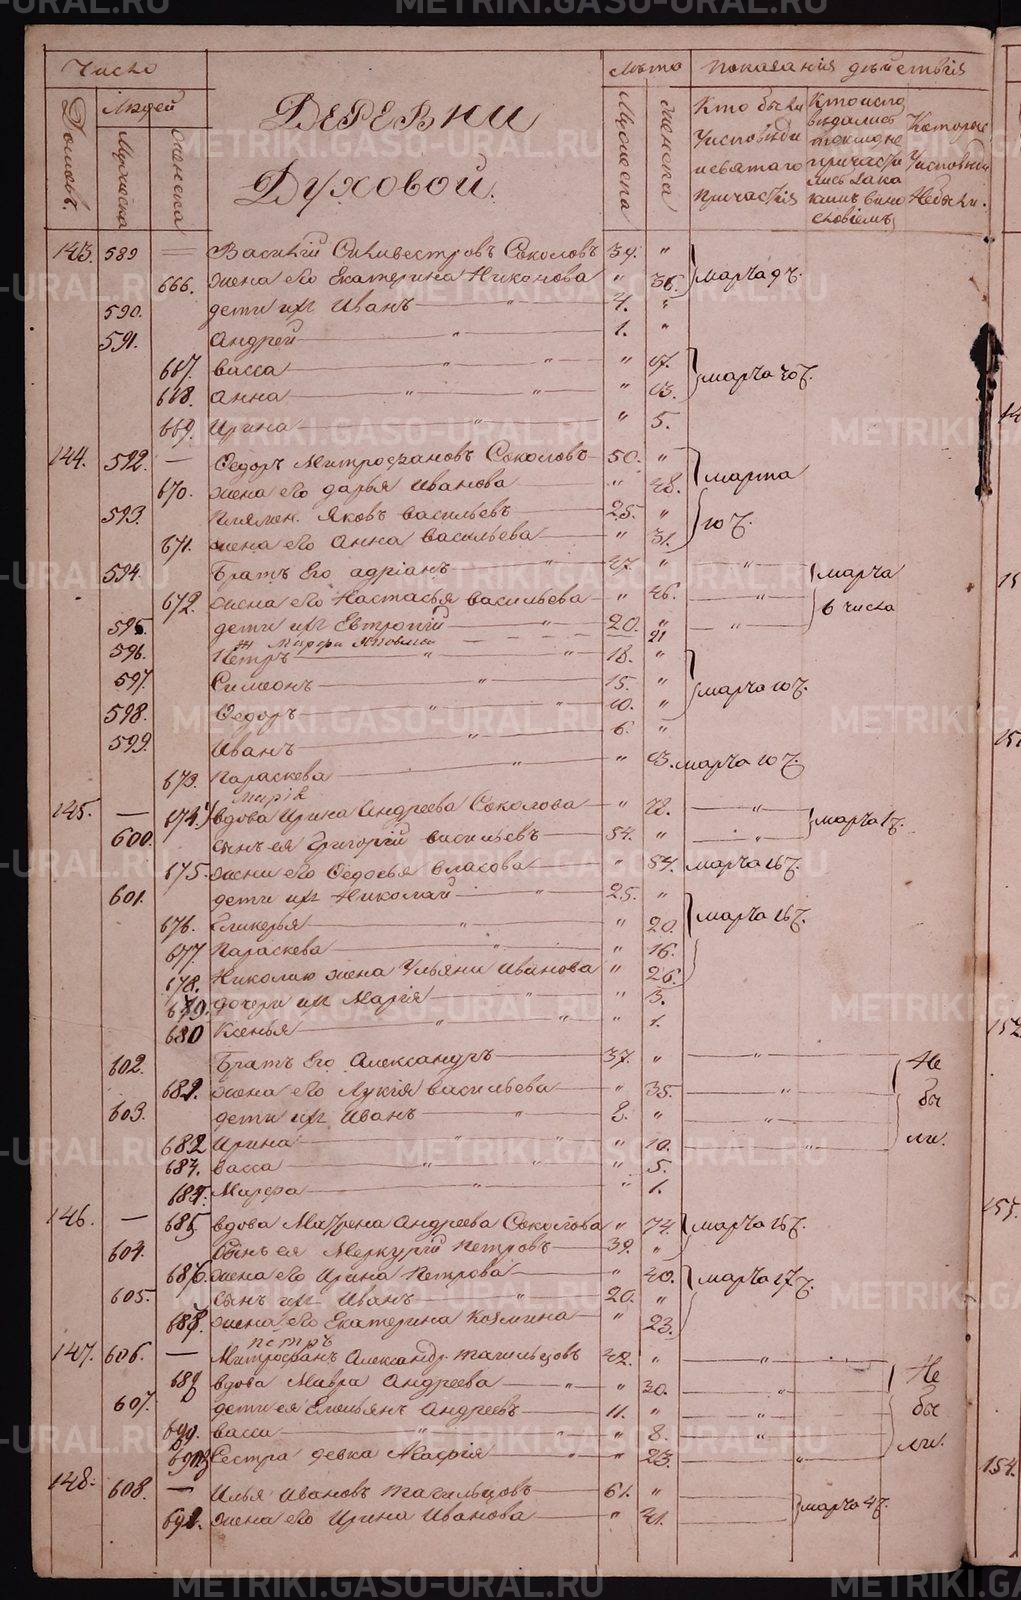 Число
Лѣта
Показанія дѣйствія
Домовъ.
Людей
Мужеска
Женска
Деревни
Духовой.
Мужеска
Женска
Кто были
У исповѣди
и святаго
Причастія
Кто испо
ведались
токмо не
причасти
лись за ка
кимъ вино
словіемъ
Которые
У исповѣди
не были.
143. 589 — Василій Силивестровъ Соколовъ 39. "
666. жена его Екатерина Никонова " 36. марта 9 ч.
590. дети ихъ Иванъ — " 4. "
591. Андрей — " 1. "
667. васса — " " " 17.
668. Анна — " " " 13. марта 10 ч.
669. Ирина — " " 5.
144. 592. — Федоръ Митрофановъ Соколовъ 50. "
670. жена его дарья Иванова " 48. марта
593. племен. Яковъ васильевъ 25. " 10 ч.
671. жена его Анна васильева " 31.
594. Братъ его адріанъ " 47. " " марта
672. жена его Настасья васильева " 46. " 6 числа
595. дети ихъ Евтропій " 20. " "
Ж 21
596. Петръ " " 18. "
597. Симеонъ " 15. "
598. Федоръ " " 10. " марта 10 ч.
599. Иванъ " 6. "
673. Параскева " " 13. марта 10 ч.
145. — 674. вдова Ирина Андреева Соколова " 72. "
600. сынъ ея Григорій васильевъ 54. " " марта
675. жена его Федосья власова " 54. марта 16 ч.
601. дети ихъ Николай " 25. "
676. Гликерья " " 20. марта 16 ч.
677. Параскева " " 16.
678. Николаю жена Ульяна Иванова " 26.
679. дочери ихъ Марія " " 3.
680 Ксенья " " " 1.
602. Братъ Его Александръ 37. " " Не
681. жена его Лукия васильева " 35. " бы
603. дети ихъ Иванъ " 8. " "
682 Ирина " " " 10. " ли.
683. васса " " " 5.
684. Марфа " " 1.
146. — 685 вдова Матрена Андреева Соколова " 74. марта 15 ч.
604. Сынъ ея Меркурій Петровъ 39. "
686. жена его Ирина Петрова " 40. марта 17 ч.
605. Сынъ ихъ Иванъ " 20. "
687. жена его Екатерина Козмина " 23.
петръ
147. 606. — Митрофанъ Александр. тагильцовъ 42. " " Не
688 вдова Мавра Андреева " " 30. " бы
607. дети ея Емельянъ Андреевъ " 11. " "
689. васса " " " 8. " ли.
690 Сестра девка Марія " " 23. "
148. 608. — Илья Ивановъ тагильцовъ 61. "
691. жена его Ирина Иванова " 41. марта 4 ч.